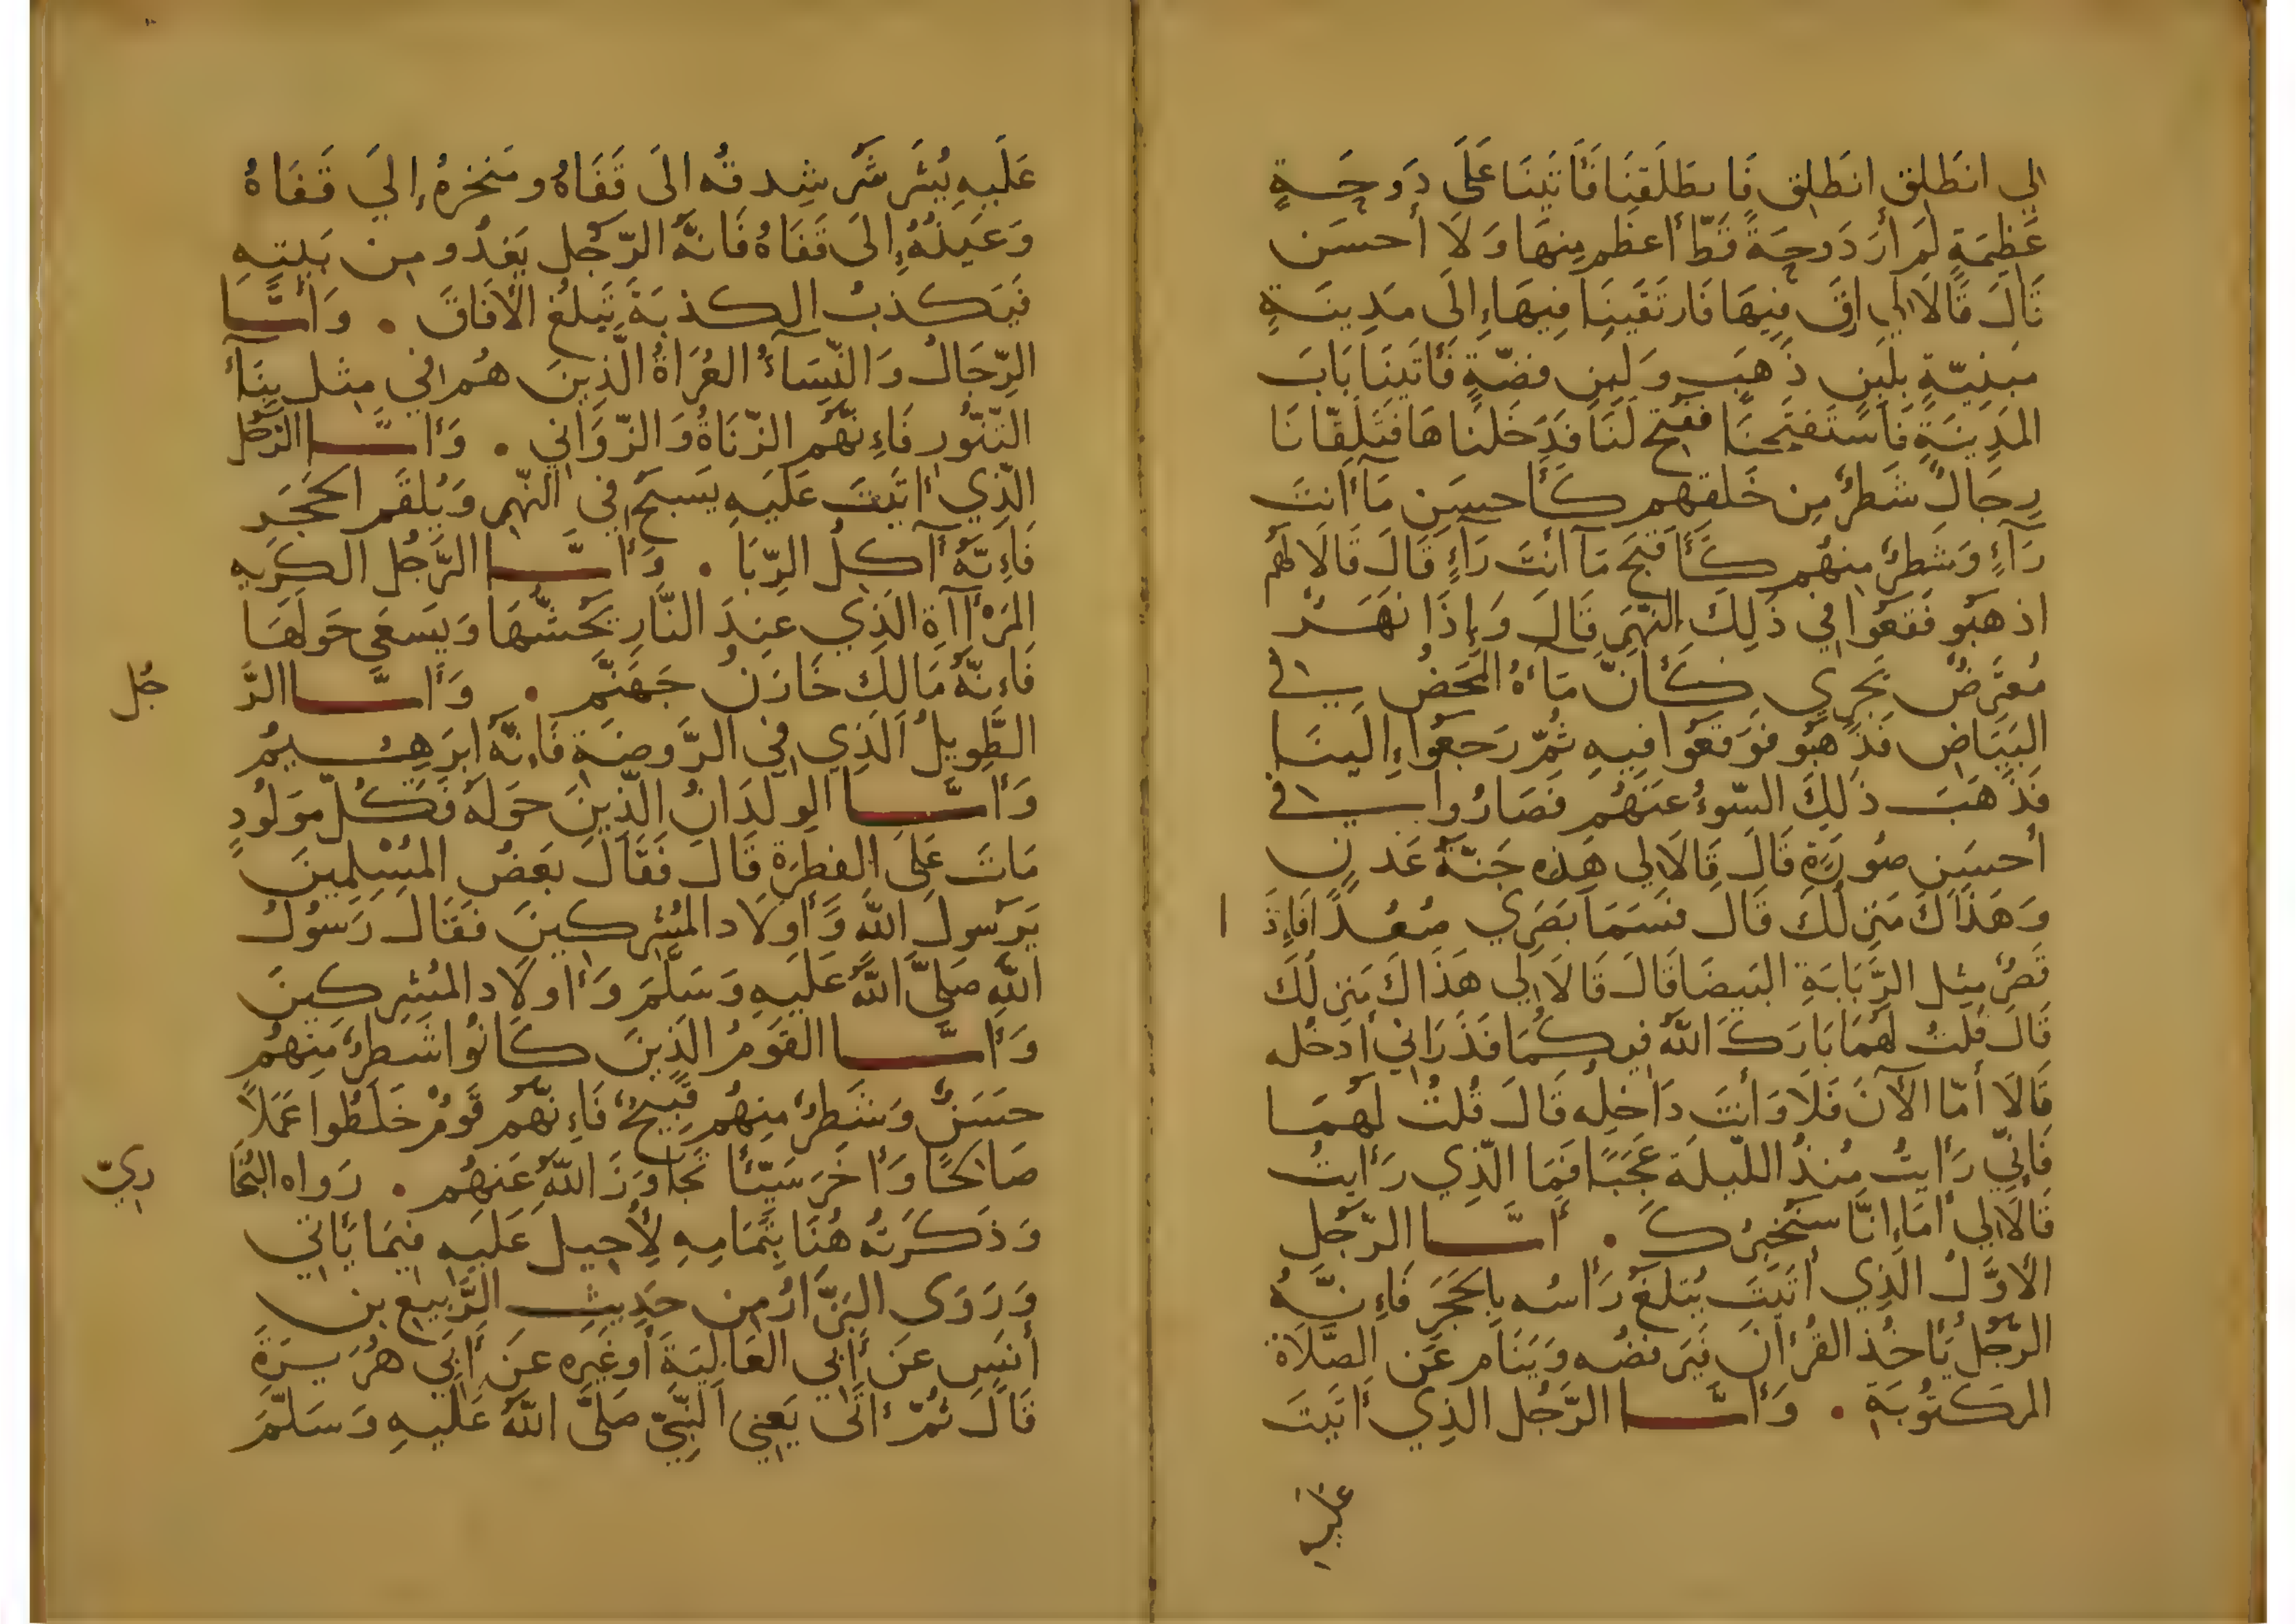 لي انطَلِق انطَلِق فَانطَلَقنَا فَأَتَينَا عَلَى دَوحَةٍ
عَظِيمَةٍ لَم أَرَ دَوحَةً قَطّ أَعظم مِنهَا وَلَا أَحسَن
قَالَ قَالَا لِي ارقَ فِيهَا فَارتَقَينَا فِيهَا إِلَى مَدِينَةٍ
مَبنِيّةٍ بِلَبِنِ ذَهَبٍ وَلَبِنِ فضّةٍ فَأَتَينَا بَابَ
المَدِينَةِ فَاستَفتَحنَا ففُتِح لَنَا فَدَخَلنَاهَا فَتَلَقّانَا
رِجَالٌ شَطرٌ مِن خَلقِهِم كَأَحسَنِ مَا أَنتَ
رَآءٍ وَشَطرٌ مِنهُم كَأَقبَحِ مَا أَنتَ رَآءٍ قَالَ قَالَا لَهُم
اذهَبُو فَقَعُوا فِي ذَلِكَ النّهَرِ قَالَ وَإِذَا نَهَرٌ
مُعتَرِضٌ يَجرِي كَأَنّ مَآءَهُ المَحضُ في
البَيَاضِ فَذَهَبُو فَوَقَعُوا فِيهِ ثُمّ رَجَعُوا إِلَينَا
فَذَهَبَ ذَلِكَ السّوءُ عَنهُم فَصَارُوا في
أَحسَنِ صُورَةٍ قَالَ قَالَا لِي هَذِه جَنّةُ عَدنٍ
وَهَذَاكَ مَنزِلُكَ قَالَ فَسَمَا بَصَرِي صُعُدًا فَإِذَ
ا
قَصرٌ مِثل الرَّبَابَةِ البَيضَا قَالَ قَالَا لِي هَذَاكَ مَنزِلُكَ
قَالَ قُلتُ لَهُمَا بَارَكَ اللَّهُ فِيكُمَا فَذَرَانِي أَدخُله
قَالَا أَمّا الآنَ فَلَا وَأَنتَ دَاخِلُه قَالَ قُلتُ لَهُمَا
فَإِنِّي رَأَيتُ مُنذُ اللّيلَة عَجَبًا فَمَا الّذِي رَأَيتُ
قَالَا لِي أَمَا إِنَّا سَنُخبِرُكَ . أَمَّا الرّجُل
الأَوَّلُ الّذِي أَتَيتَ يُثلَغُ رَأسُه بِالحَجَرِ فَإِنَّهُ
الرّجُلُ يَأخُذ القُرآنَ فَيَرفضُه وَيَنَام عَن الصَّلَاة
المَكتُوبَةِ . وَأَمَّا الرَّجُل الذِي أَتَيتَ
عَلَيهِ
عَلَيهِ يُشَرشَرُ شِدقُه إلَى قَفَاهُ ومَنخِرهُ إِلَى قَفَاهُ
وَعَينُهُ إِلَى قَفَاهُ فَإنَّهُ الرّجُل يَغدُو مِن بَيتِهِ
فَيَكذِبُ الكذبَةَ تَبلُغ الآفَاقَ . وَأَمَّا
الرِّجَالُ وَالنِّسَآءُ العُرَاةُ الَّذِينَ هُم فِي مِثل بِنَآءِ
التّنُّورِ فَإِنّهُم الزّنَاةُ وَالزّوَانِي . وَأَمَّا الرّجُل
الّذِي أَتَيتَ عَلَيهِ يَسبَحُ فِي النّهرِ وَيُلقَم الحَجَر
فَإِنّهُ آكِلُ الرِّبَا . وَأَمَّا الرَّجُل الكَرِيه
المَرْآةِ الّذِي عِندَ النَّارِ يَحُشّهَا وَيَسعَى حَولَهَا
فَإِنّهُ مَالِك خَازِنُ جَهَنّم . وَأَمَّا الرَّ
جُل
الطَّوِيلُ الّذِي فِي الرَّوضَةِ فَإِنّهُ ابرَهِيمُ
وَأَمَّا الوِلدَانُ الّذِينَ حَولَهُ فَكُلّ مَولُودٍ
مَاتَ عَلَى الفِطرَةِ قَالَ فَقَالَ بَعضُ المُسْلِمِينَ
يَرَسُولَ اللّه وَأَولَاد المُشرِكِينَ فَقَالَ رَسُولُ
اللَّهِ صَلَّى اللَّهُ عَلَيهِ وَسَلَّمَ وَأَولَاد المُشرِكِينَ
وَأَمَّا القَومُ الّذِينَ كَانُوا شَطرٌ مِنهُم
حَسَنٌ وَشَطرٌ مِنهُم قَبِيحٌ فَإِنّهُم قَومٌ خَلَطُوا عَمَلًا
صَالِحًا وَآخَرَ سَيّئًا تَجَاوَزَ اللَّهُ عَنهُم . رَواه البُخَا
رِيّ
وَذَكَرتُه هُنَا بِتَمَامِهِ لِأُحِيلَ عَلَيهِ فِيمَا يَأتِي
وَرَوَى البَزّارُ مِن حَدِيثِ الرَّبِيعِ بن
أَنَسٍ عَن أَبِي العَالِيَةَ أَو غَيرِه عَن أَبِي هُرَيرَةَ
قَالَ ثُمّ أَتَى يَعنِي النَّبِيّ صَلَّى اللَّهُ عَلَيهِ وَسَلَّمَ